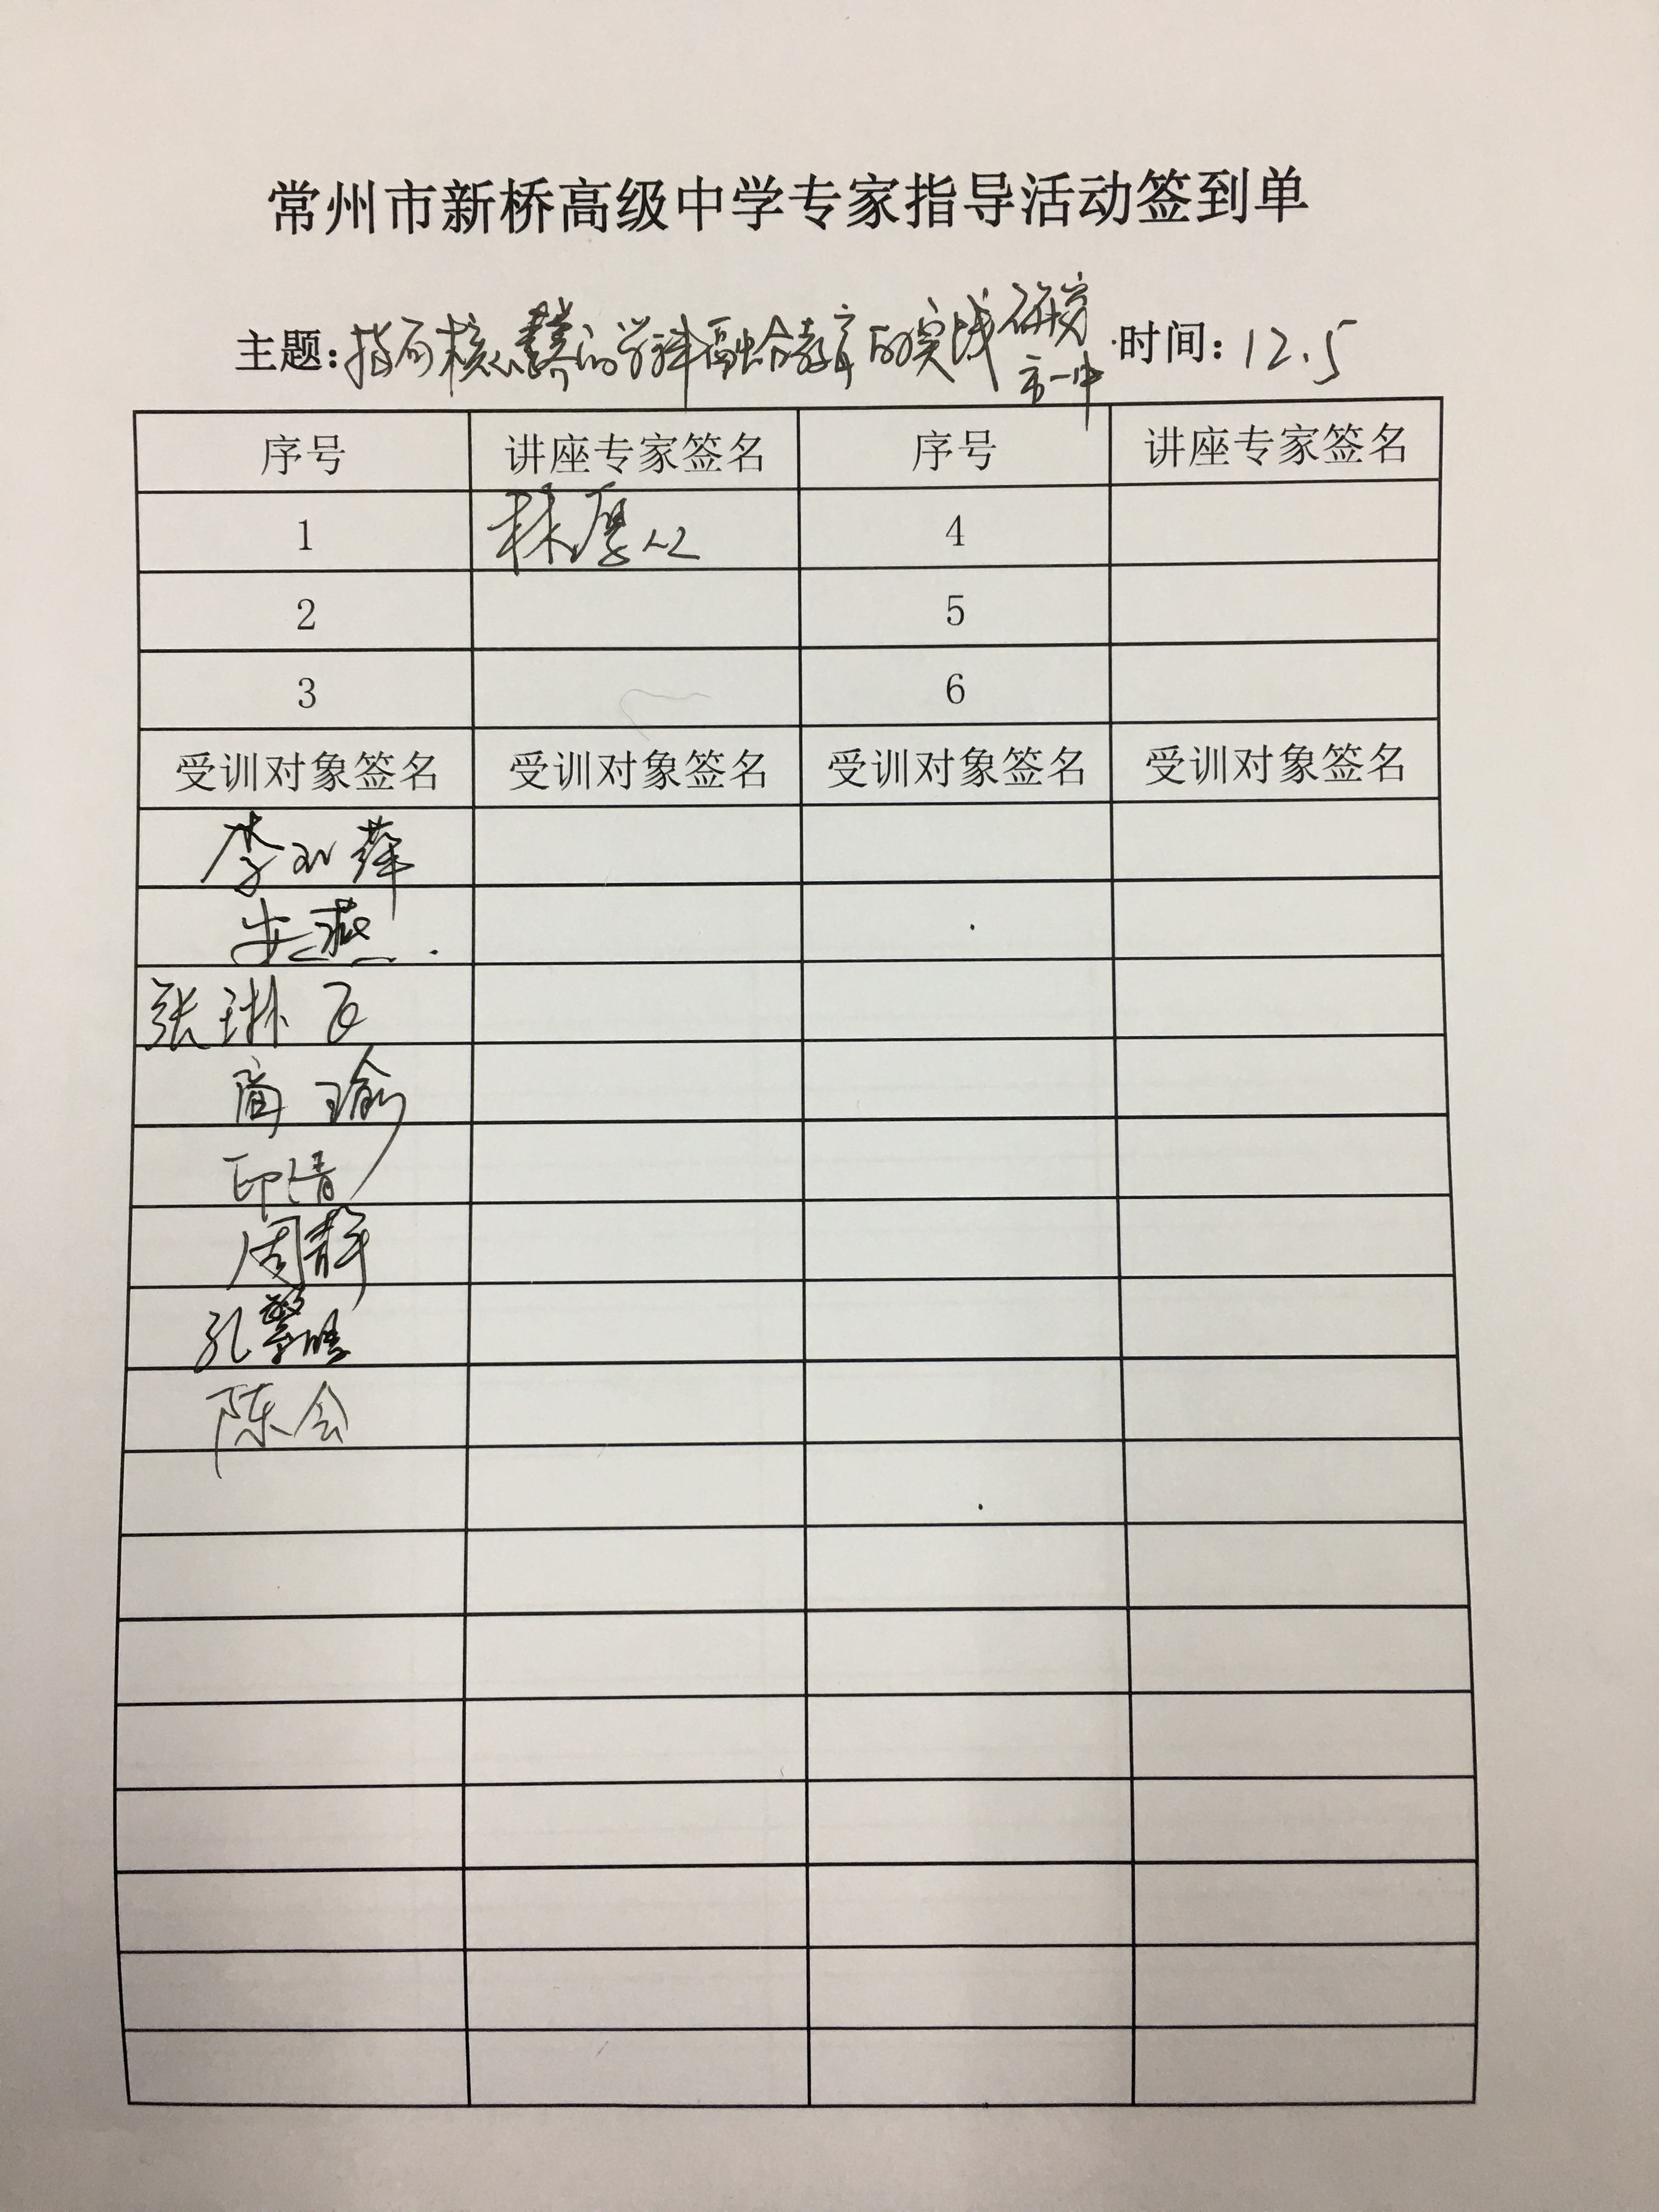 常州市新桥高级中学专家指导活动签到单
主题:指向核心素养的学科融合教育的实践研究 时间:12.5
市一中
序号 讲座专家签名 序号 讲座专家签名
1 林厚从 4
2 5
3 6
受训对象签名 受训对象签名 受训对象签名 受训对象签名
李 萍
安燕
张琳
蔺瑜
印倩
周静
孔
陈会